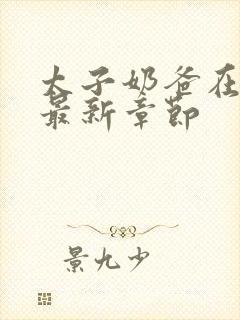 太子奶爸在
最新章节
景九少